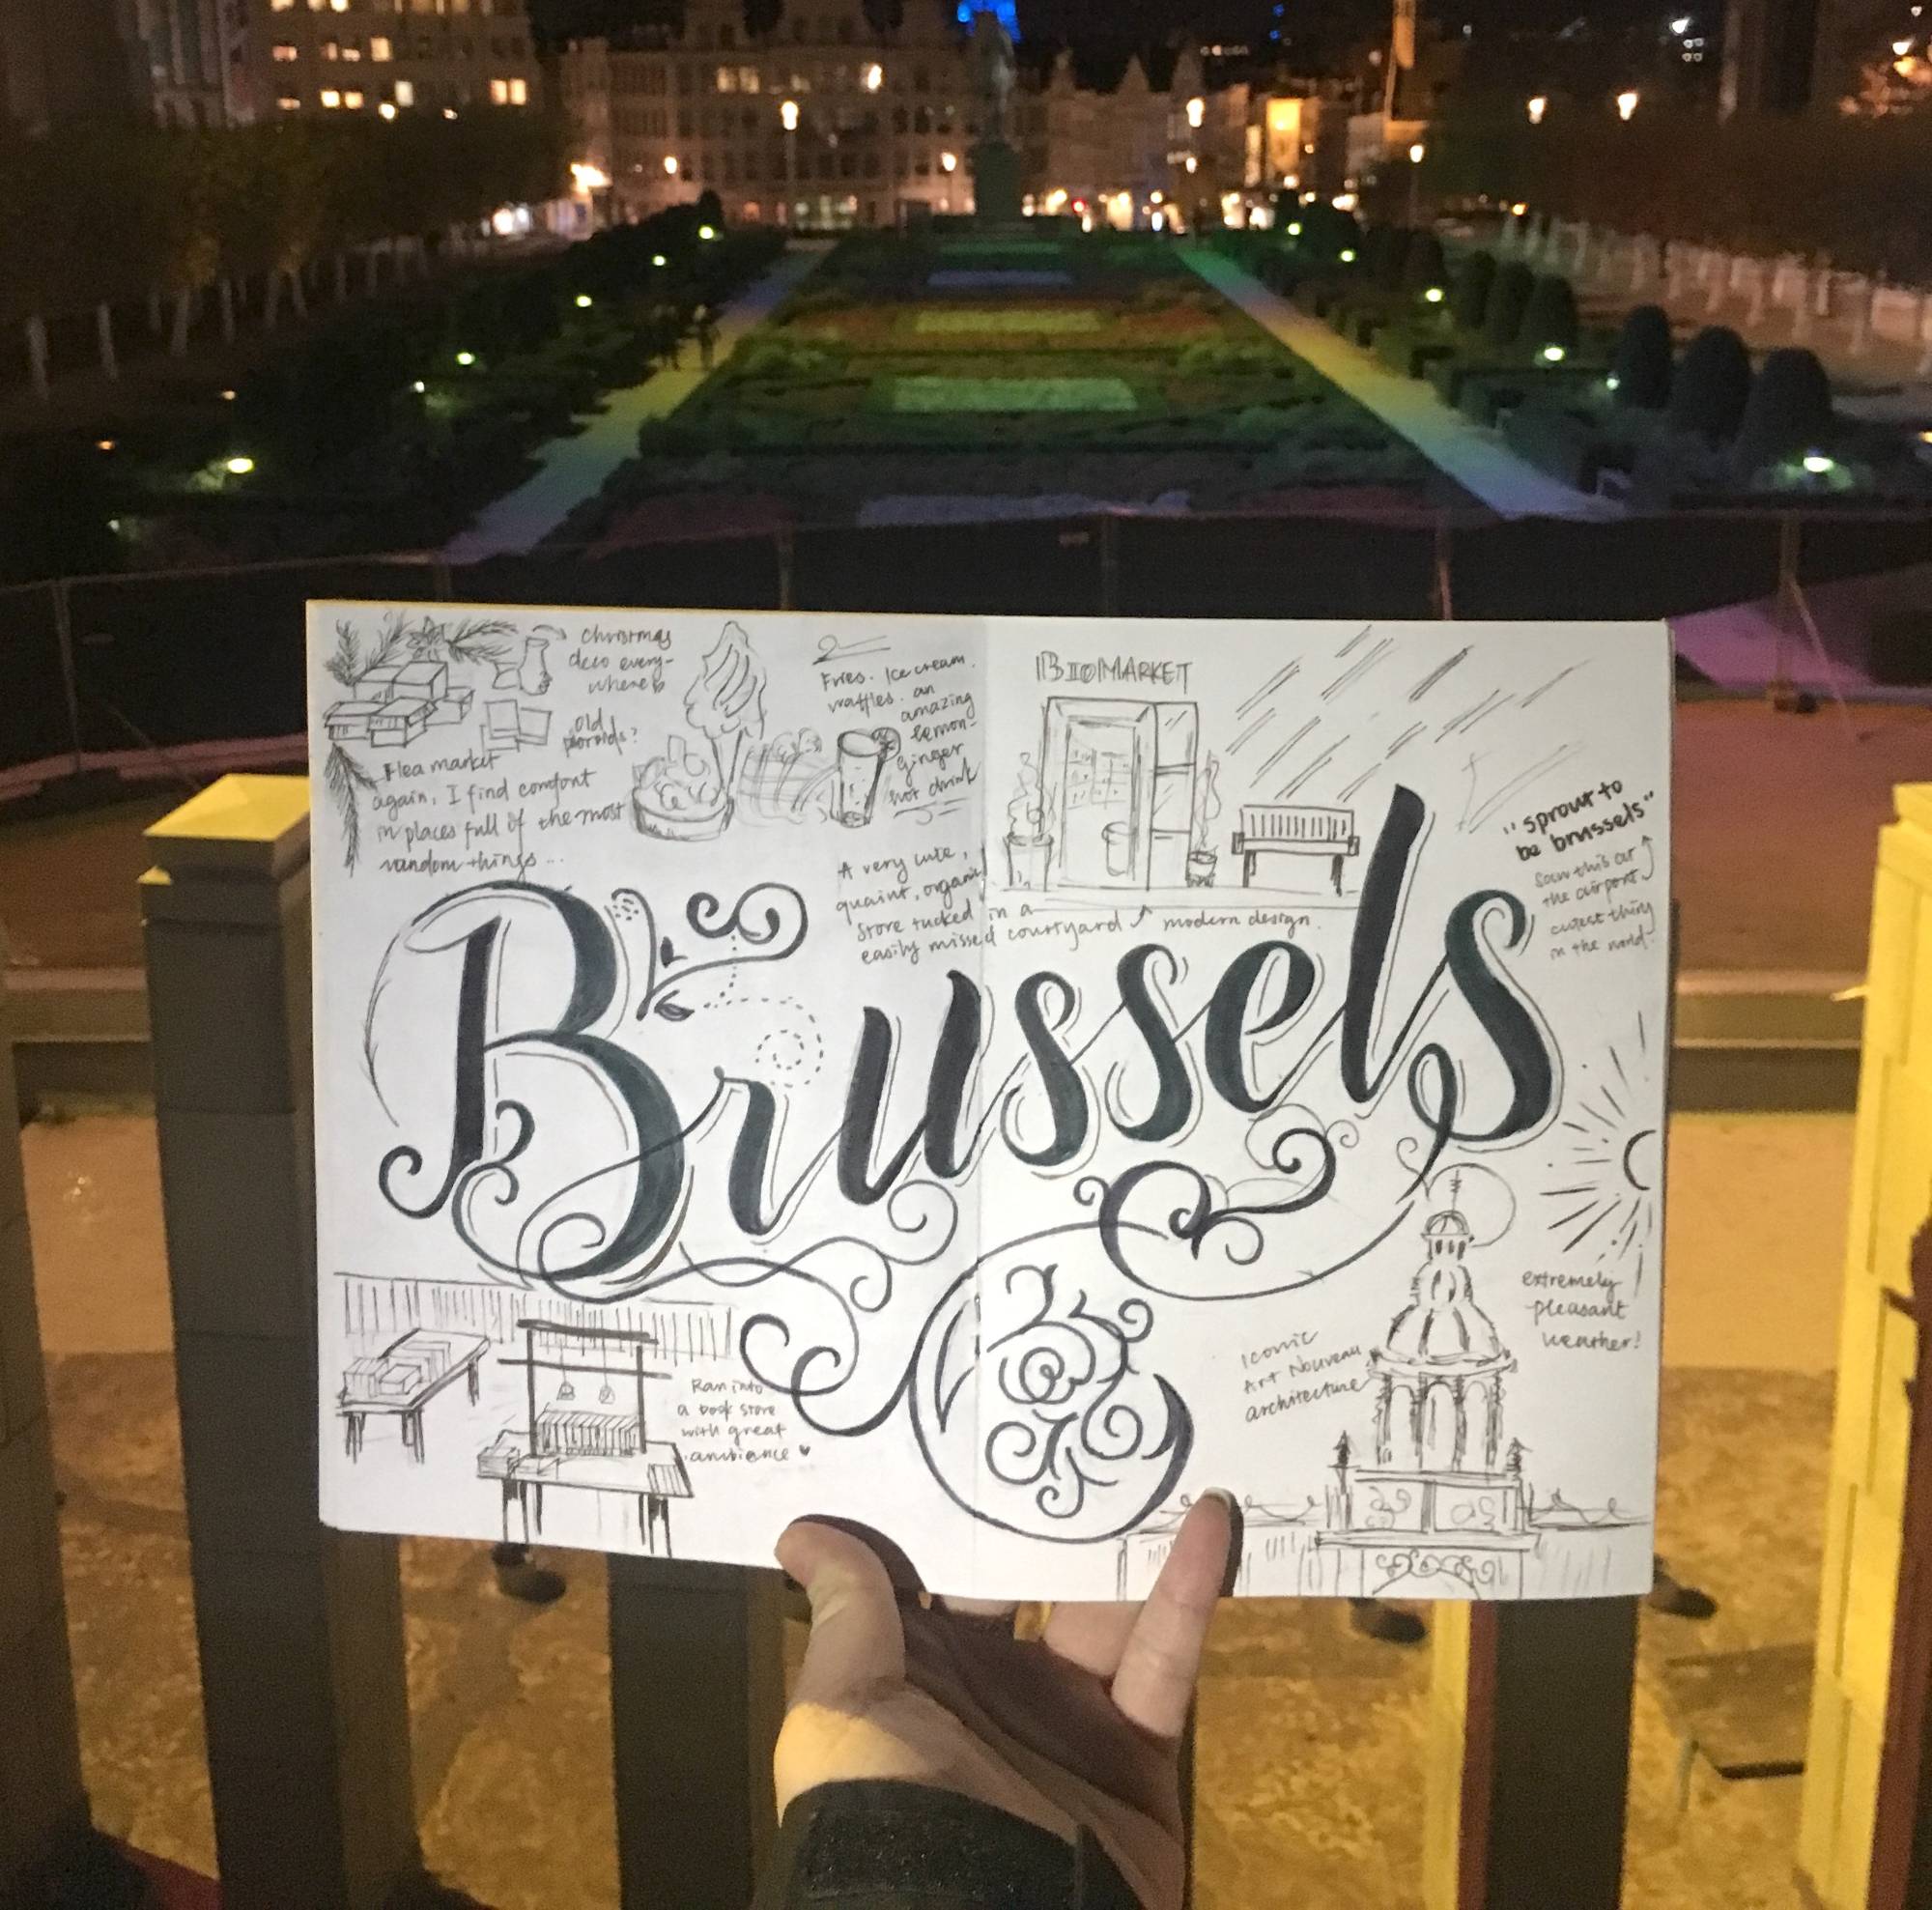 Christmas
deco every-
where
old
Flea market
again, I find comfort
in places full of the most
random things...
Fries. Ice cream.
waffles. an
amazing
lemon-
ginger
hot drink
BIOMARKET
A very cute,
quaint, organic
store tucked in a
easily missed courtyard ↑ modern design.
"sprout to
be brussels"
saw this at
the airport
cutest thing
in the world!
Brussels
Ran into
a book store
with great
ambience ♥
Iconic
Art Nouveau
architecture
extremely
pleasant
weather!